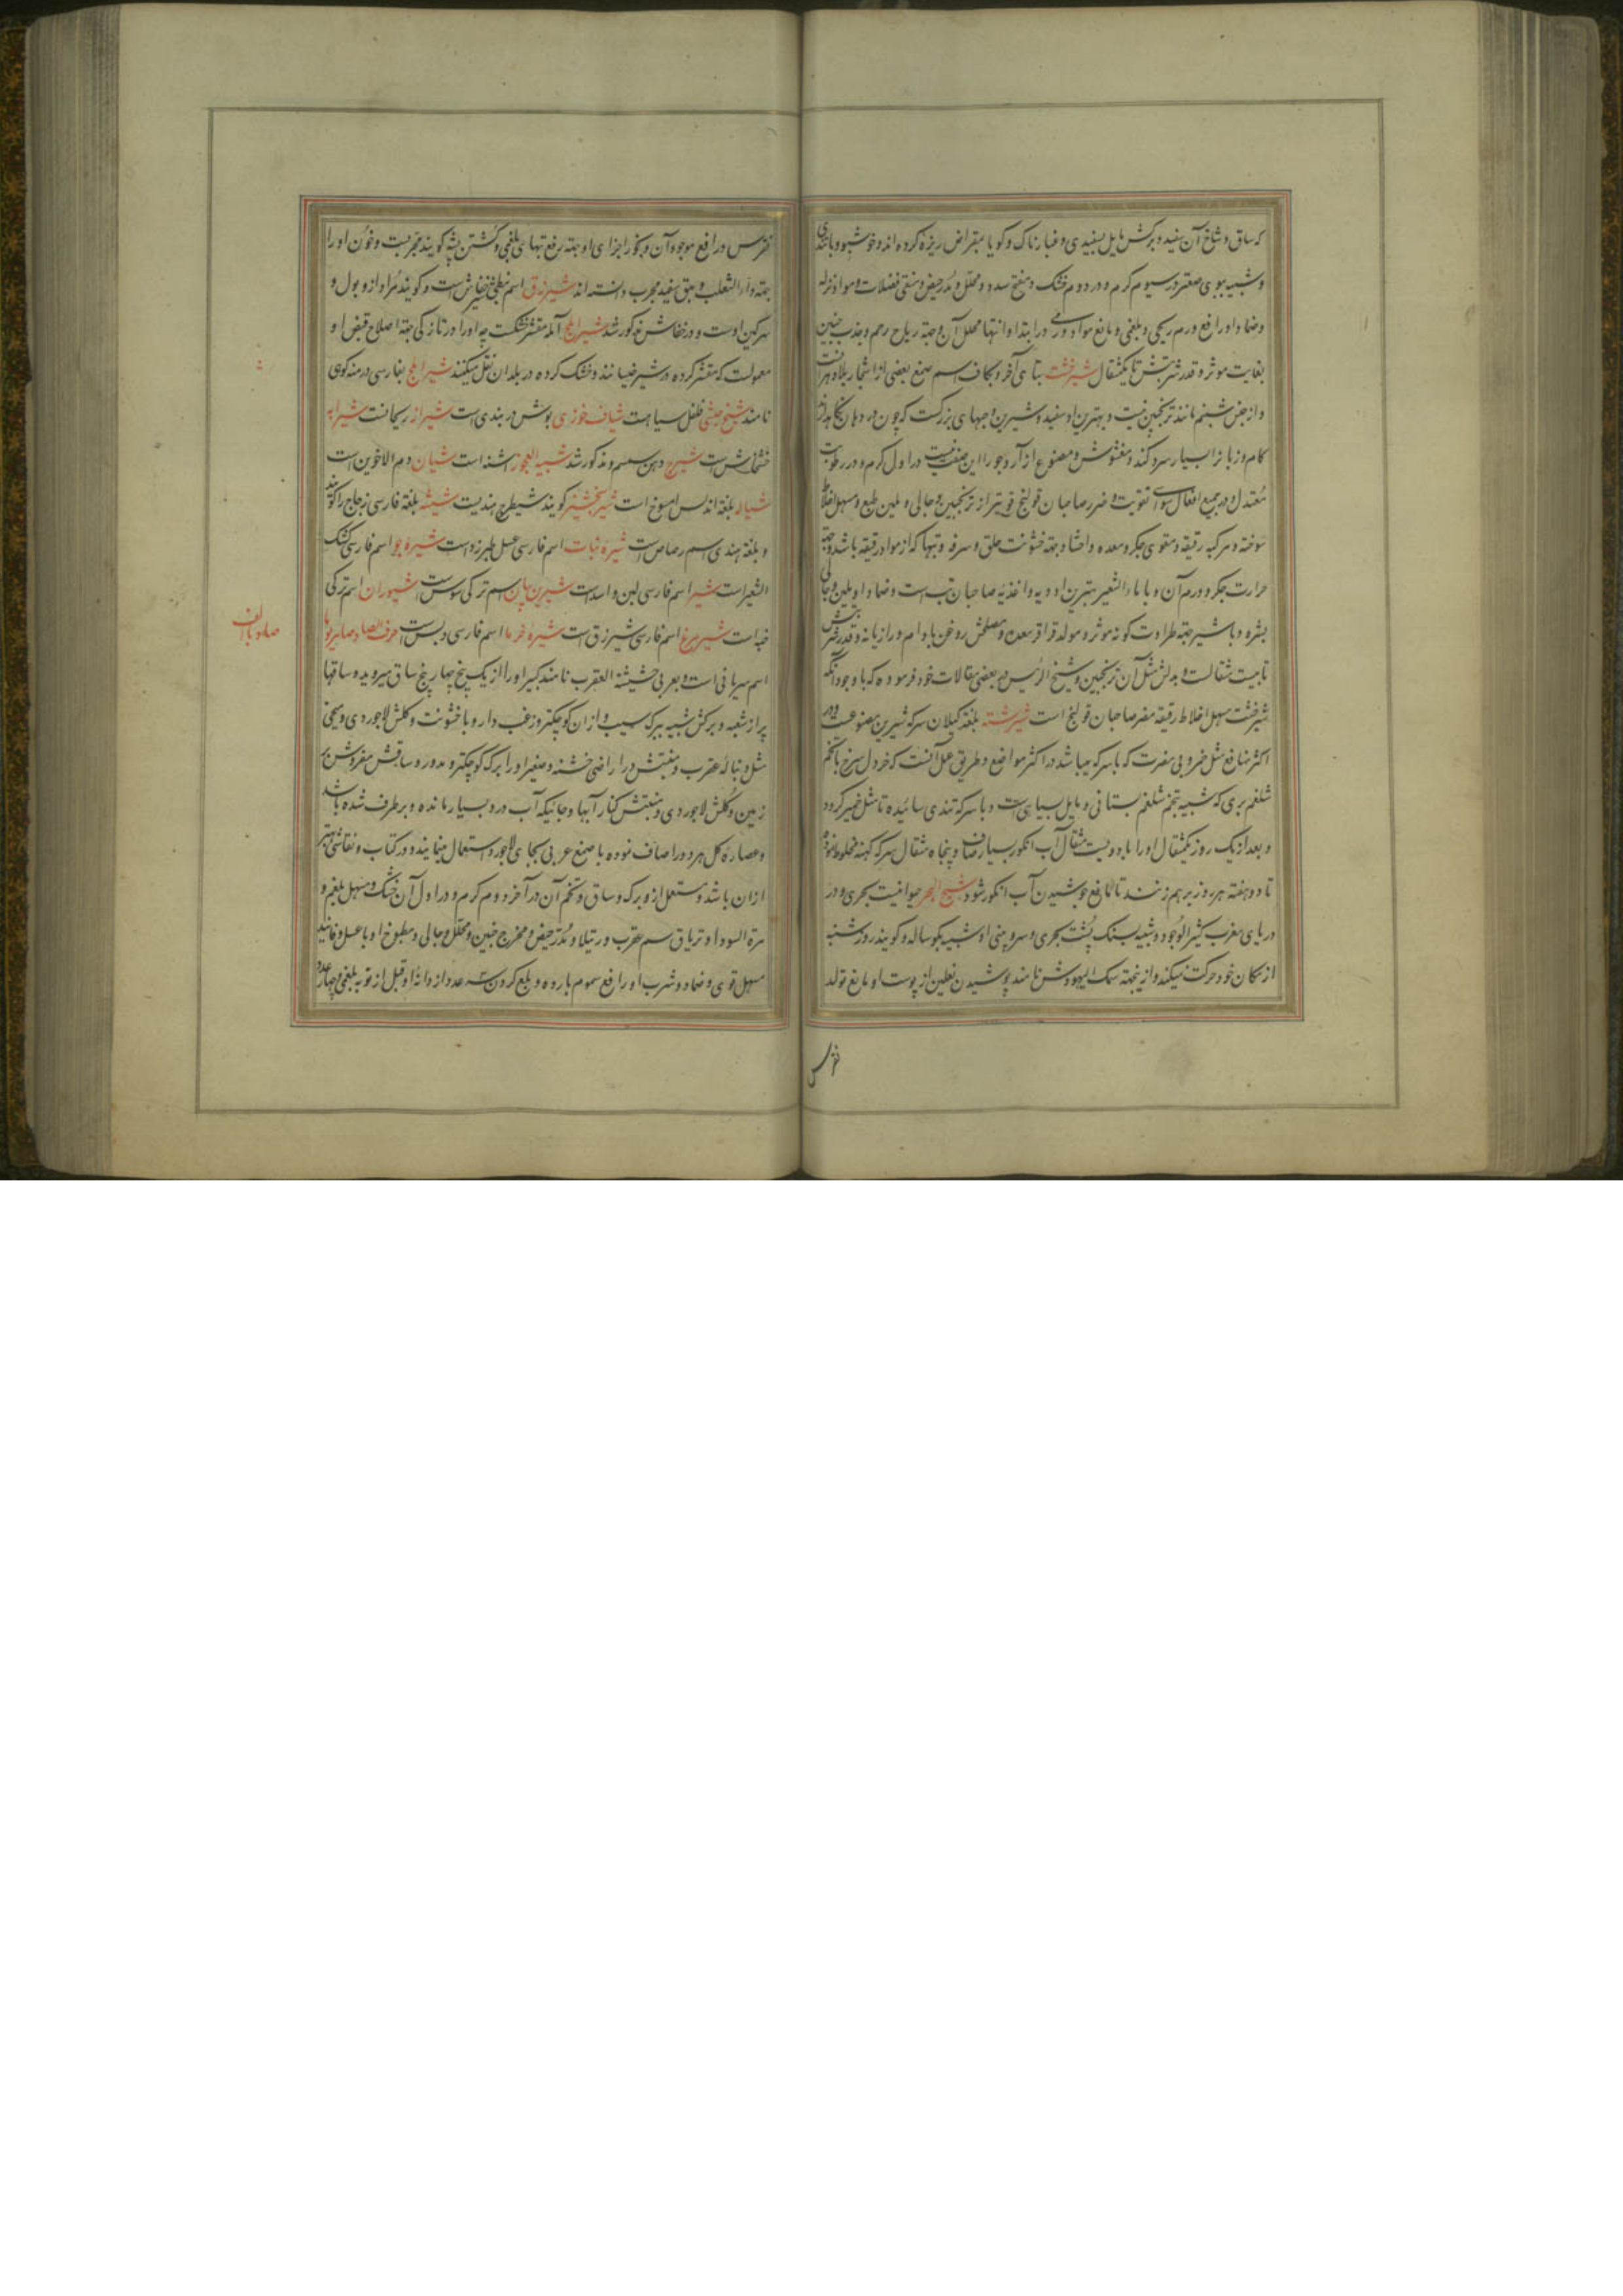 که ساق و شاخ آن سفید و برکش مایل بسفیدی و غبارناک و کویا بمقراض ریزه کرده اند و خوشبو و باتندی
و شبیه ببوی صعتر در سیوم کرم و در دوم خشک و مفتح سدد و محلل و مدر حیض و منقی فضلات و مواد نزله
و ضماد او رافع ورم ریحی و بلغمی و مانع مواد ورمی در ابتدا و انتها محلل آن و جهة ریاح رحم و جذب جنین
بغایت موثر و قدر شربتش تا یکمثقال شیرخشت بتای آخر و بکاف اسم صمغ بعضی از اشجار بلاد هرات
و از جنس شبنم مانند ترنجبین نیست و بهترین او سفید و شیرین و حبهای بزرکست که چون در دهان نکاهدارند
کام و زبان را بسیار سرد کند و مغشوش و مصنوع از آرد جو را این صفت نیست در اول کرم و در رطوبت
معتدل و در جمیع افعال سوای تقویت و ضرر صاحبان قولنج قویتر از ترنجبین و جالی و ملین طبع و مسهل اخلاط
سوخته و مرکبه رقیقه و مقوی جکر و معده و احشا و جهة خشونت حلق و سرفه و تبها که از مواد رقیقه باشد و جهة
حرارت جکر و ورم آن و با ماء الشعیر بهترین ادویه و اغذیه صاحبان تب است و ضماد او ملین و جالی
بشره و با شیر جهة طراوت کونه موثر و مولد قراقر معده و مصلحش روغن بادام و رازیانه و قدر شربتش
تا بیست مثقالست و بدلش مثل آن ترنجبین و شیخ الرئیس در بعضی مقالات خود فرموده که باوجود آنکه
شیرخشت مسهل اخلاط رقیقه مضر صاحبان قولنج است شیرشته بلغة کیلان سرکه شیرین مصنوعیست و در
اکثر منافع مثل خمر و بی مضرت که با سرکه میباشد در اکثر مواضع و طریق عمل آنست که خردل سرخ با تخم
شلغم بری که شبیه بتخم شلغم بستانی و مایل بسیاهی است و با سرکه تندی سائیده تا مثل خمیر کردد
و بعد از یک روز یکمثقال او را با دویست مثقال آب انکور بسیار صاف و پنجاه مثقال سرکه کهنه مخلوط نموده
تا دو هفته هر روز بر هم زنند تا مانع جوشیدن آب انکور شود شیخ البحر حیوانیست بحری و در
دریای مغرب کثیر الوجود و شبیه بسنک پشت بحری و سر و بینی او شبیه بکوساله و کویند روز شنبه
از مکان خود حرکت نمیکند و ازینجهة سمک الیهودش نامند پوشیدن نعلین از پوست او مانع تولد
نقرس
نقرس و رافع موجود آن و بخور اجزای او جهة رفع تبهای بلغمی و کشتن پشه کویند مجربست و خون او را
جهة داء الثعلب و بهق سفید مجرب دانسته اند شیرزق اسم نبطی شیر خفاش است و کویند مراد ازو بول و
سرکین اوست و در خفاش مذکور شد شیراملج آمله مقشر خشکست چه او را در تازکی جهة اصلاح قبض او
معمولست که مقشر کرده در شیر خیسانند و خشک کرده در بلدان نقل میکنند شیح بفارسی درمنه کوهی
نامند شیخ حبشی فلفل سیاهست شیاف خوزی بوش دربندی است شیراز ریحانست شیرابه
خشخاش است شیرج دهن سمسم و مذکور شد شیبة العجوز اشنه است شیان دم الاخوین است
بلغة اندلس امسوخ است کویند شیطرج هندیست شیشه بلغة فارسی زجاج را کویند
و بلغة هندی اسم رصاص است شیره نبات اسم فارسی عسل طبرزد است شیره جو اسم فارسی کشک
الشعیر است شیر اسم فارسی لبن و اسد است شیرین بیان اسم ترکی سوس است شیوران اسم ترکی
خبه است شیرمرغ اسم فارسی شیرزق است شیره خرما اسم فارسی دبس است حرف الصاد صامریوما
اسم سریانی است و بعربی حشیشة العقرب نامند کبیر او را از یک بیخ چهار پنج ساق میروید و ساقها
پر از شعبه و برکش شبیه ببرک سیب و از ان کوچکتر و زغب دار و با خشونت و کلش لاجوردی و منحنی
مثل دنباله عقرب و منبتش در اراضی خشنه و صغیر او را برک کوچکتر و مدور و ساقش مفروش بر
زمین و کلش لاجوردی و منبتش کنار آبها و جائیکه آب درو بسیار مانده و برطرف شده باشد
و عصاره کل هر دو را صاف نموده با صمغ عربی بجای لاجورد استعمال مینمایند و در کتاب و نقاشی بهتر
از ان باشد و مستعمل ازو برک و ساق و تخم آن در آخر دوم کرم و در اول آن خشک و مسهل بلغم و
مرة السودا و تریاق سم عقرب و رتیلا و مدر حیض و مخرج جنین و محلل و جالی و مطبوخ او با عسل و فانید
مسهل قوی و ضماد و شرب او رافع سموم بارده و بلع کردن سه عدد از دانۀ او قبل از نوبه بلغمی و چهار عدد
صاد با الف